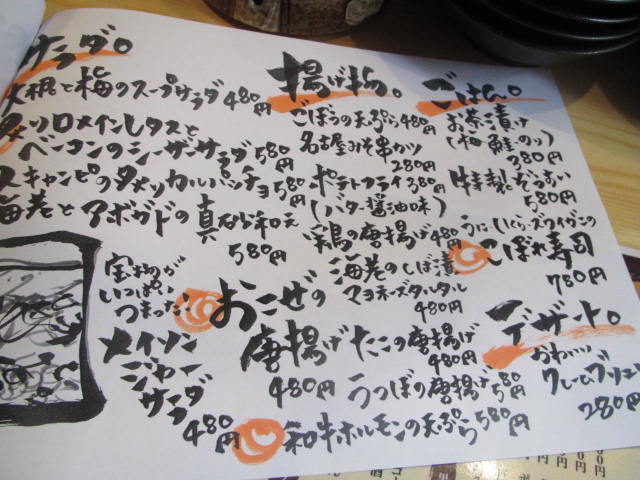 サラダ。
大根と梅のスープサラダ 480円
ロメインレタスと
ベーコンのシーザーサラダ 580円
スキャンピの カルパッチョ 580円
海老とアボガドの真砂和え
580円
宝物が
いっぱい
つまった
メイソン
ジャー
サラダ
480円
揚げ物。
ごぼうの天ぷら 480円
名古屋みそ串かつ
280円
ポテトフライ 380円
(バター醤油味)
鶏の唐揚げ 480円
海老のしば漬
マヨネーズタルタル
480円
おこぜの
唐揚げ
480円
たこの唐揚げ
480円
うつぼの唐揚げ 580円
和牛ホルモンの天ぷら 580円
ごはん。
お茶漬け
(梅・鮭・のり)
380円
特製とぞうすい
580円
うに・いくら・ズワイガニの
こぼれ寿司
780円
デザート。
クレームブリュレ
280円